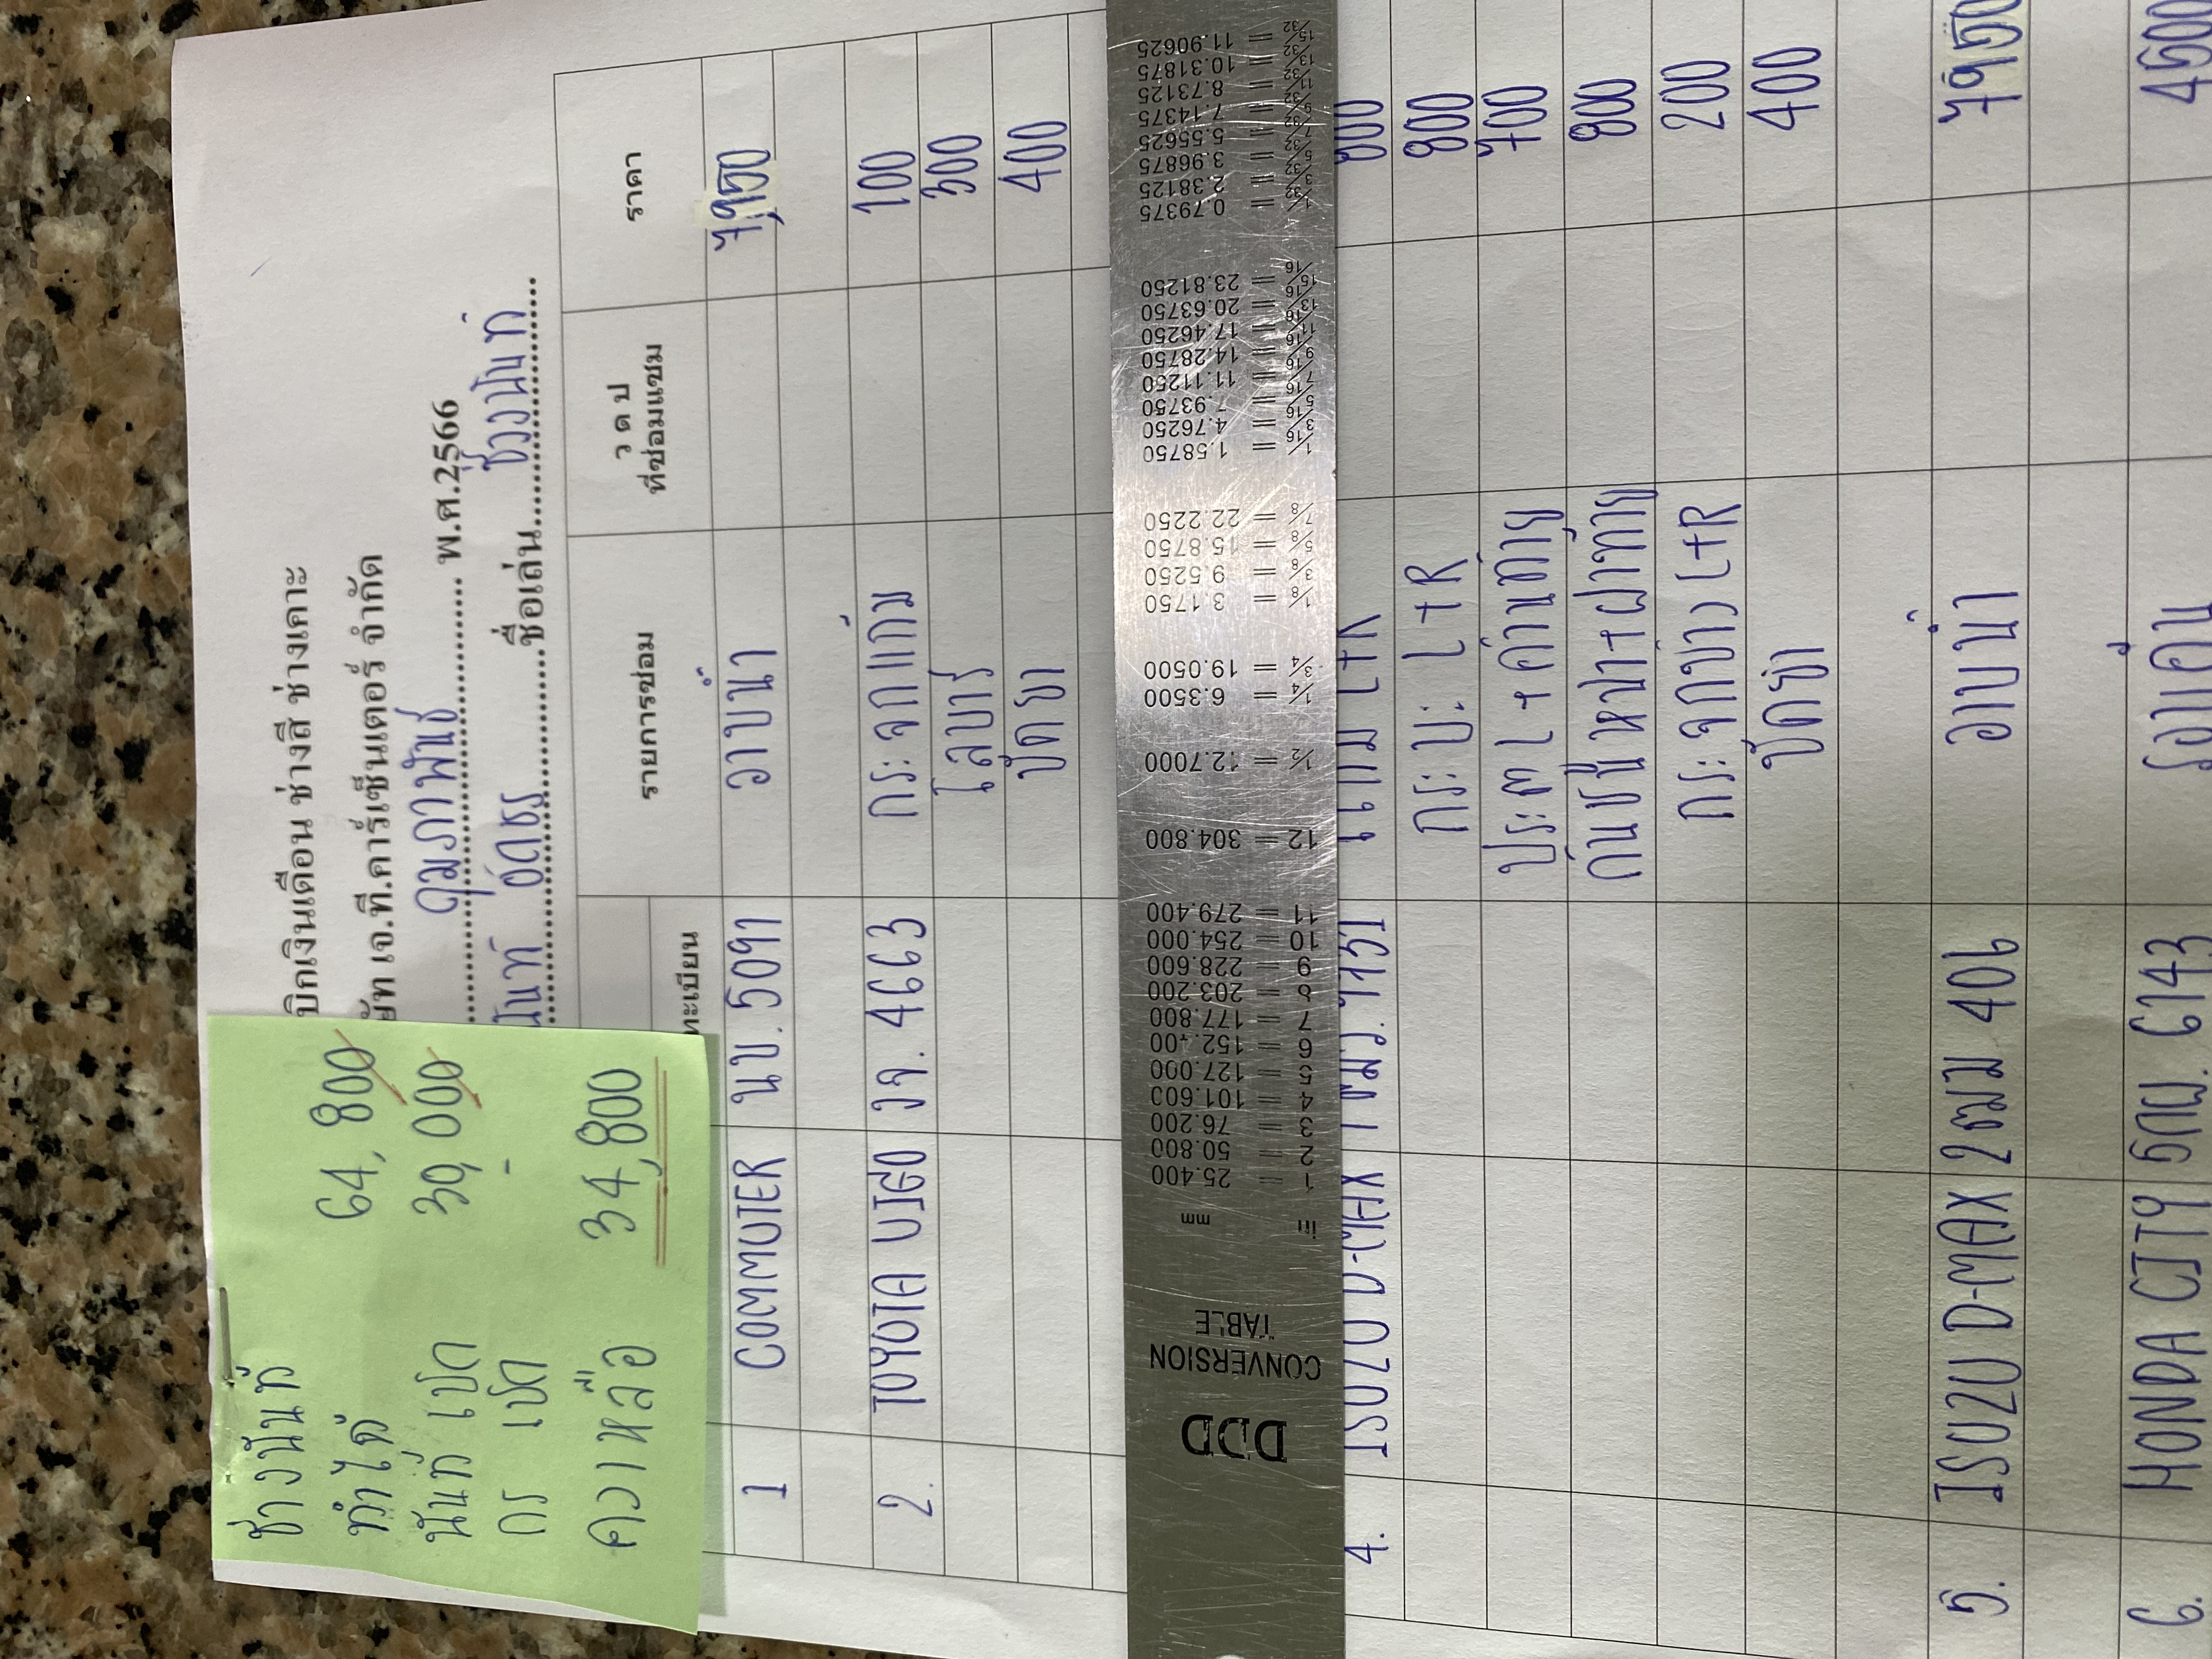 ช่างนันท์
ทำได้ 64,800
นันท์ เบิก 30,000
กร เบิก -
คงเหลือ 34,800
บิกเงินเดือน ช่างสี ช่างเคาะ
ษัท เจ.ที.คาร์เซ็นเตอร์ จำกัด
กุมภาพันธ์ พ.ศ.2566
นันท์ ชื่อเล่น ช่างนันท์
ทะเบียน รายการซ่อม ว ด ป ที่ซ่อมแซม ราคา
1 COMMUTER นข. 5091 อาบน้ำ 7,950
2. TOYOTA VIGO วจ. 4663 กระจกแก้ม 100
ไลบาร์ 300
ขัดยา 400
DDD CONVERSION TABLE
in mm
1 = 25.400
2 = 50.800
3 = 76.200
4 = 101.600
5 = 127.000
6 = 152.400
7 = 177.800
8 = 203.200
9 = 228.600
10 = 254.000
11 = 279.400
12 = 304.800
1/2 = 12.7000
1/4 = 6.3500
3/4 = 19.0500
1/8 = 3.1750
3/8 = 9.5250
5/8 = 15.8750
7/8 = 22.2250
1/16 = 1.58750
3/16 = 4.76250
5/16 = 7.93750
7/16 = 11.11250
9/16 = 14.28750
11/16 = 17.46250
13/16 = 20.63750
15/16 = 23.81250
1/32 = 0.79375
3/32 = 2.38125
5/32 = 3.96875
7/32 = 5.55625
9/32 = 7.14375
11/32 = 8.73125
13/32 = 10.31875
15/32 = 11.90625
4. ISUZU D-MAX แก้ม L+R 800
กระบะ L+R 800
ประตู L + ด้านท้าย 700
กันชนหน้า+ฝาท้าย 800
กระจกข้าง L+R 200
ขัดยา 400
5. ISUZU D-MAX 2ฒม 406 อาบน้ำ 7950
6. HONDA CITY 5กผ. 6143 รอบคัน 4500